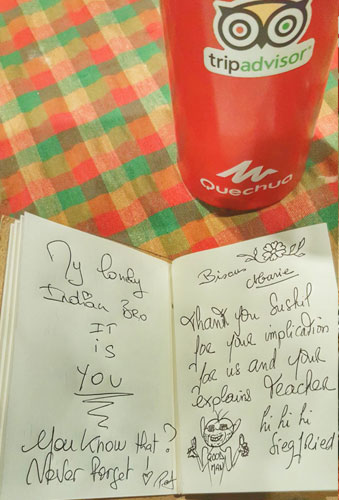 tripadvisor
Quechua
My lovely
Indian Bro
IT
is
YOU
You know that?
Never forget!
Bisous
Marie
Thank you Sushil
for your implication
for us and your
explains Teacher
hi hi hi
Siegfried
MAN